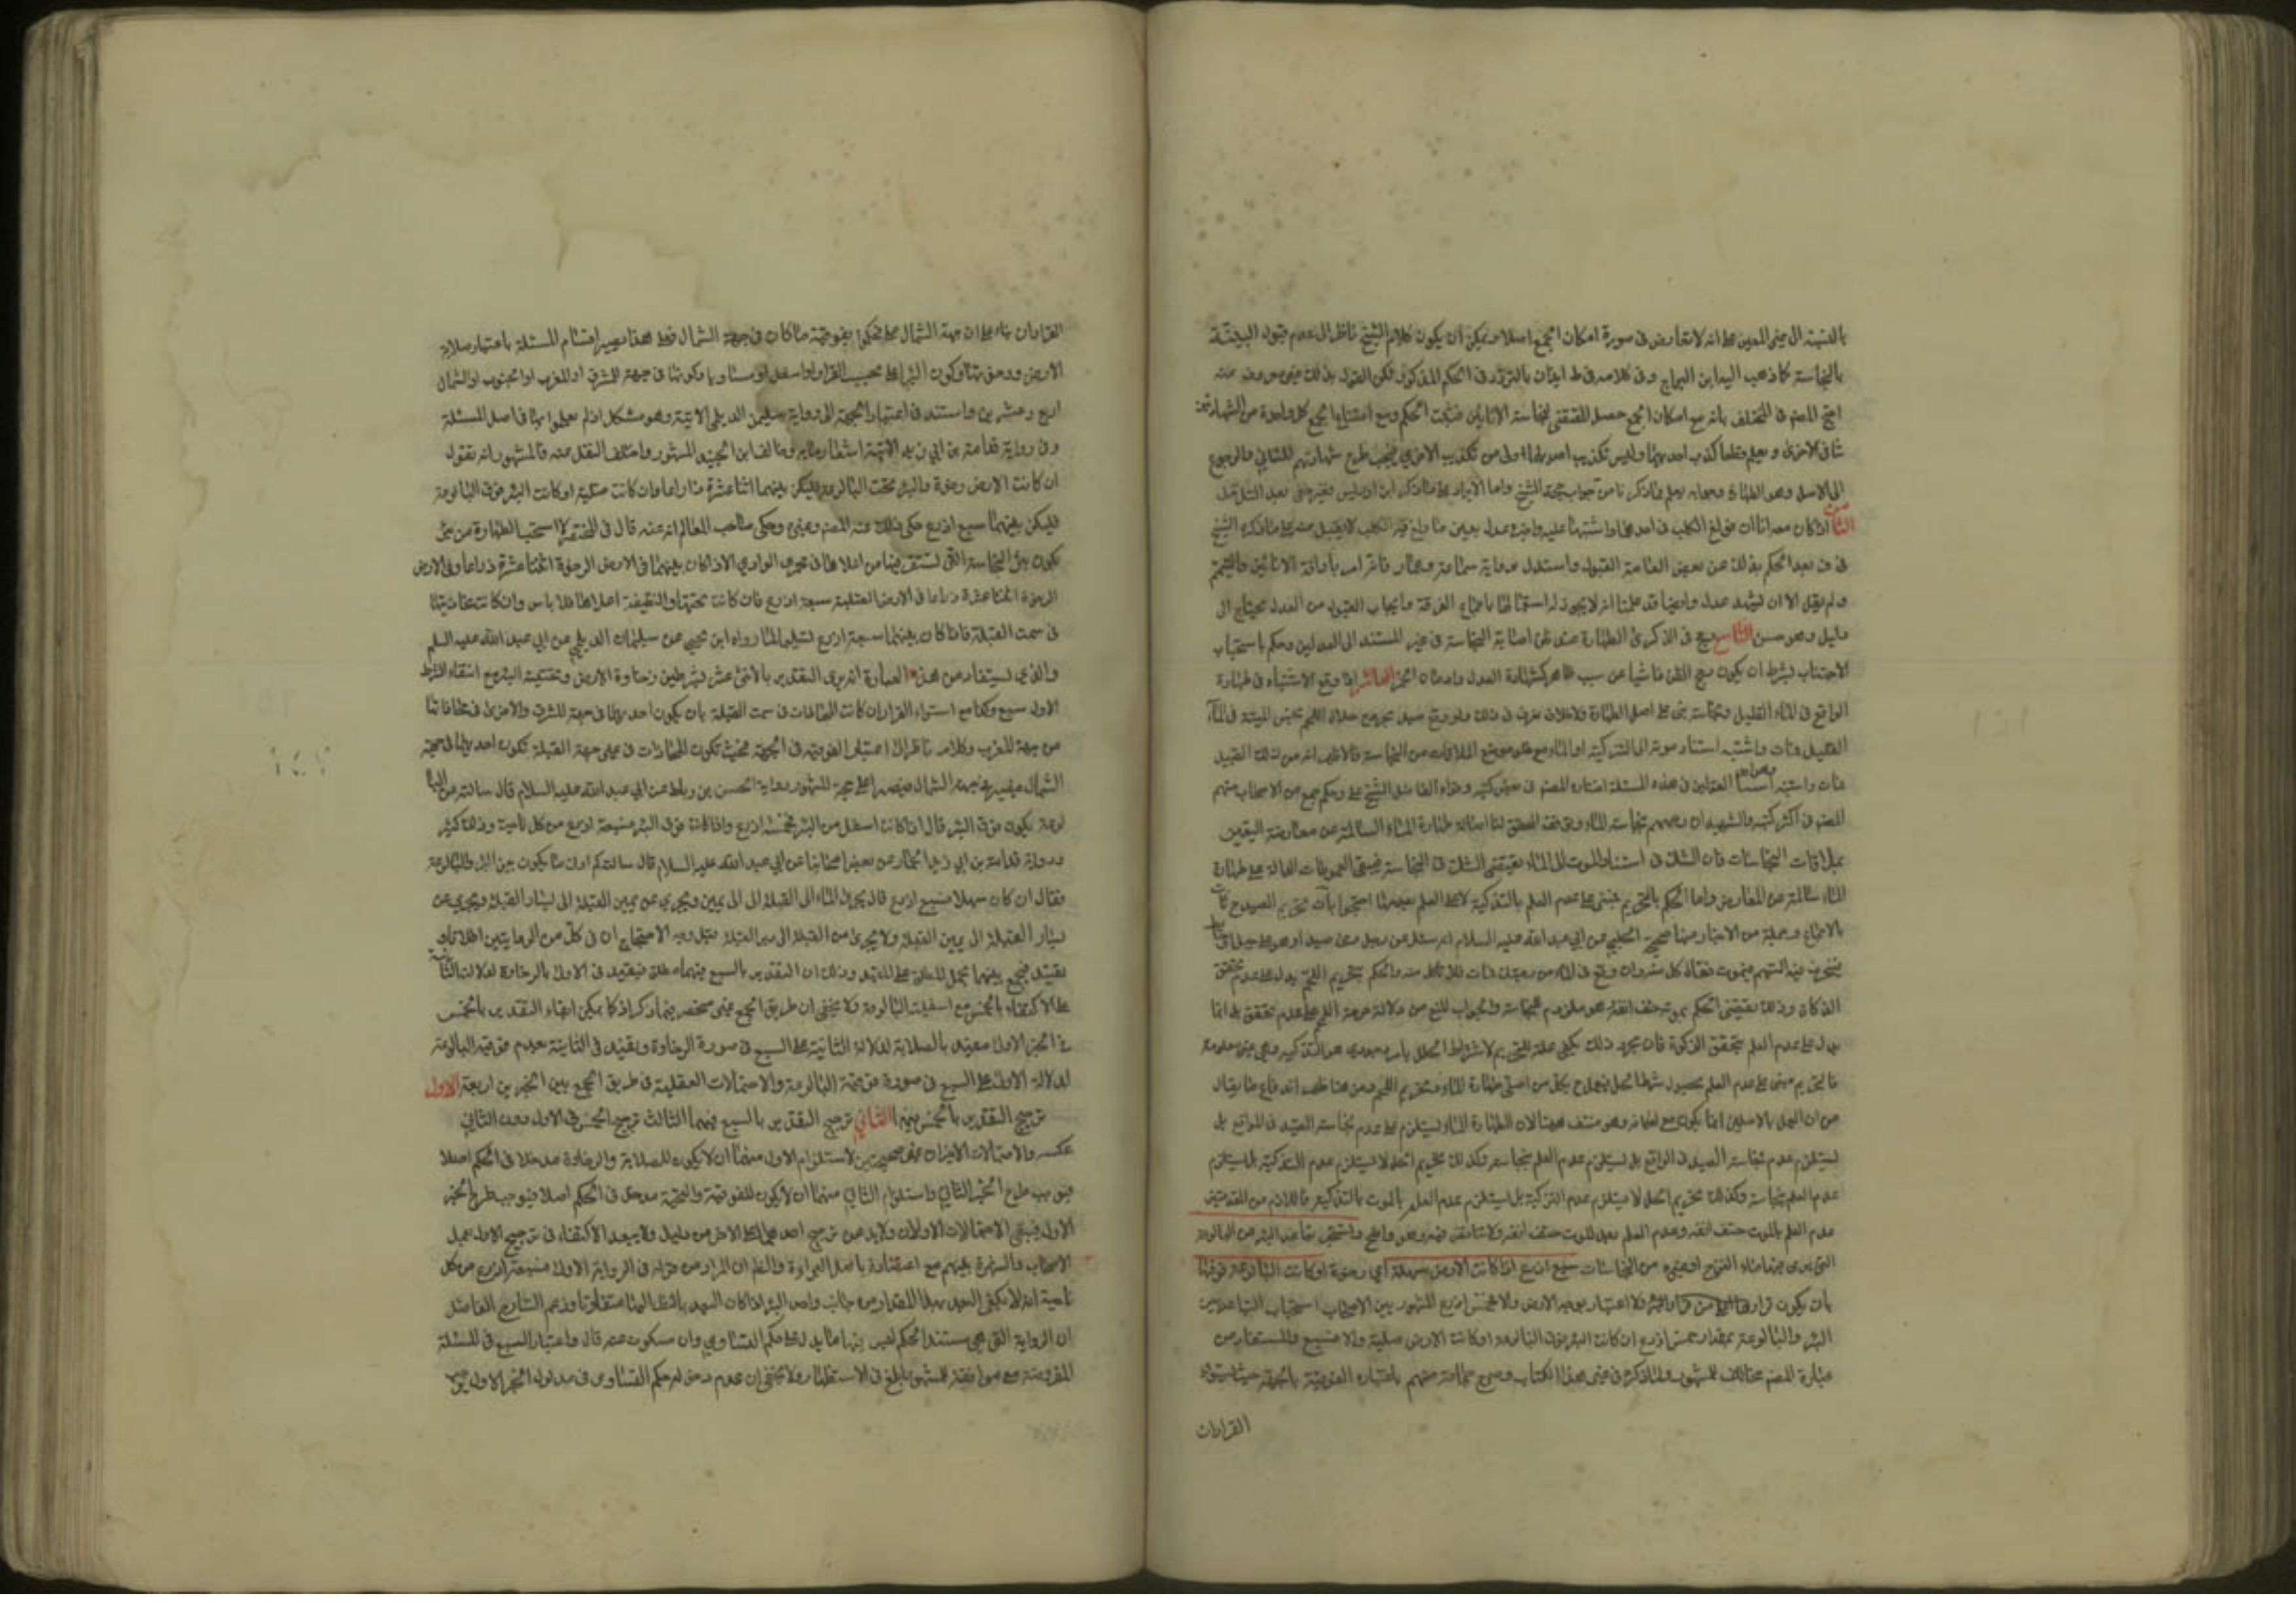 بالنسبة الى معنى المعين على انه لا تعارض في صورة امكان الجمع اصلا ويمكن ان يكون كلام الشيخ ناظرا الى عدم قبول البينة
بالنجاسة كما ذهب اليه ابن البراج وفي كلامه في ط ايذان بالتردد في الحكم المذكور
احتج المصنف في المختلف بانه مع امكان الجمع حصل المقتضي لنجاسة الانائين فثبت الحكم ومع امتناع الجمع كل واحدة من الشهادتين
تنافي الاخرى ويعلم قطعا كذب احديهما وليس تكذيب احديهما اولى من تكذيب الاخرى فيجب طرح شهادتهم للتنافي والرجوع
الى الاصل وهو الطهارة وجوابه يعلم مما ذكرنا من جواب حجة الشيخ واما الايراد على ما ذكره ابن ادريس فغير خفي بعد التأمل
الثامن اذا كان معه اناان فولغ الكلب في احدهما واشتبها عليه واخبره عدل بعين ما ولغ فيه الكلب لا يقبل منه على ما ذكره الشيخ
في ف بعد الحكم بذلك عن بعض العامة القبول واستدل برواية سماعة وعمار فانه امر باراقة الانائين والتيمم
ولم يقل الا ان يشهد عدل وايضا قد علمنا انه لا يجوز له استعمالهما باجماع الفرقة وايجاب القبول من العدل يحتاج الى
دليل وهو حسن التاسع رجح في الذكرى الطهارة عند ظن اصابة النجاسة في غير المستند الى العدلين وحكم باستحباب
الاجتناب بشرط ان يكون رجح الظن ناشيا عن سبب ظاهر كشهادة العدل وادمان الخمر العاشر اذا وقع الاشتباه في طهارة
الواقع في الماء القليل ونجاسته بنى على اصل الطهارة ولا خلاف نعرف في ذلك ولو وقع صيد مجروح حلال اللحم نجس الميتة في الماء
القليل فمات واشتبه استناد موته الى التذكية او الماء مع خلو موضع الملاقات من النجاسة فالاظهر انه من ذلك القبيل
القولين في هذه المسئلة اختاره المصنف في بعض كتبه وقواه الفاضل الشيخ علي وحكم جمع من الاصحاب منهم
المصنف في اكثر كتبه والشهيدان وغيرهم بنجاسة الماء وتوقف المحقق لنا اصالة طهارة الماء السالمة عن معارضة اليقين
بملاقات النجاسات فان الشك في استناد الموت الى الماء يقتضي الشك في النجاسة فيبقى العمومات الدالة على طهارة
الماء سالمة عن المعارض واما الحكم بالتحريم فمبني على عدم العلم بالتذكية لا على العلم بعدمها احتجوا بان تحريم الصيد ح ثابت
بالاجماع وجملة من الاخبار منها صحيحة الحلبي عن ابي عبد الله عليه السلام انه سئل عن رجل رمى صيدا وهو على جبل او حائط
فيخرق فيه السهم فيموت فقال كل منه وان وقع في الماء من رميتك فمات فلا تاكل منه والحكم بتحريم اللحم يدل على عدم تحقق
الذكاة وذلك يقتضي الحكم بموته حتف انفه وهو ملزوم للنجاسة والجواب المنع من دلالة حرمة اللحم على عدم تحقق بل انما
يدل على عدم العلم بتحقق الذكوة فان مجرد ذلك يكفي علة للتحريم لاشتراط الحل بامر وجودي هو التذكية وهي غير معلومة
فالتحريم مبني على عدم العلم بحصول شرط الحل فيعمل ح بكل من اصلي طهارة الماء وتحريم اللحم ومن هنا ظهر اندفاع ما يقال
من ان العمل بالاصلين انما يكون مع امكانه وهو منتف ههنا لان الطهارة الماء يستلزم على عدم نجاسة الصيد في الواقع بل
يستلزم عدم نجاسة الصيد في الواقع بل يستلزم عدم العلم بنجاسته وكذلك تحريم اكله لا يستلزم عدم التذكية بل يستلزم
عدم العلم بنجاسته وكذلك تحريم اكله لا يستلزم عدم التذكية بل يستلزم عدم العلم بالموت بالتذكية فاللازم من المقدمتين
عدم العلم بالموت حتف انفه وعدم العلم بعدم الموت حتف انفه ولا تناقض فيه وهو واضح ويستحب تباعد البئر عن البالوعة
التي يرمى فيها ماء النزح او غيره من النجاسات سبع اذرع اذا كانت الارض سهلة اي رخوة او كانت البالوعة فوقها
بان يكون قرارها فلا اعتبار بوجه الارض والا فخمس اذرع المشهور بين الاصحاب استحباب التباعد بين
البئر والبالوعة بمقدار خمس اذرع ان كانت البئر فوق البالوعة او كانت الارض صلبة والا فسبع والمستفاد من
عبارة المصنف مخالف للمشهور ولما ذكره في غير هذا الكتاب وصرح جماعة منهم باعتبار الفوقية بالجهة حيث استواء
القراران
القراران بناء على ان جهة الشمال فحكموا بفوقية ما كان في جهة الشمال فعلى هذا يصير اقسام المسئلة باعتبار صلابة
الارض ورخوتها وكون البئر اعلى بحسب القرار او اسفل او مساويا وكونها في جهة المشرق او المغرب او الجنوب او الشمال
اربع وعشرين واستند في اعتبار الجهة الى رواية سليمن الديلمي الاتية وهو مشكل اذ لم يعملوا بها في اصل المسئلة
وفي رواية قدامة بن ابي زيد الاتية اشعار ما به وخالف ابن الجنيد المشهور واختلف النقل عنه فالمشهور انه يقول
ان كانت الارض رخوة والبئر تحت البالوعة فليكن بينهما اثنا عشرة ذراعا وان كانت صلبة او كانت البئر فوق البالوعة
فليكن بينهما سبع اذرع حكى ذلك عنه المصنف وغيره وحكى صاحب المعالم انه عنه قال في المختصر لا استحب الطهارة من بئر
تكون بئر النجاسة التي تستقر فيها من اعلاها في مجرى الوادي الا اذا كان بينهما في الارض الرخوة اثنتا عشرة ذراعا وفي الارض
الرخوة اثنتا عشرة ذراعا في الارض الصلبة سبعة اذرع فان كانت تحتها والنظيفة اعلاها فلا باس وان كانت محاذيتها
في سمت القبلة فاذا كان بينهما سبعة اذرع تسليما لما رواه ابن يحيى عن سليمان الديلمي عن ابي عبد الله عليه السلم
والذي يستفاد من هذه العبارة انه يرى التقدير بالاثني عشر بشرطين رخاوة الارض وتحتية البئر ومع انتفاء الشرط
الاول سبع وكذا مع استواء القرار ان كانت المحاذات في سمت القبلة بان يكون احديهما في جهة المشرق والاخرى في محاذاتها
من جهة المغرب وكلامه ناظر الى اعتبار الفوقية في الجهة بحيث تكون المحاذات في غير جهة القبلة تكون احديهما في جهة
الشمال حجة المشهور رواية الحسن بن رباط عن ابي عبد الله عليه السلام قال سالته عن البا
لوعة يكون فوق البئر قال اذا كانت اسفل من البئر فخمسة اذرع واذا كانت فوق البئر فسبعة اذرع من كل ناحية وذلك كثير
ورواية قدامة بن ابي زيد الحمار عن بعض اصحابنا عن ابي عبد الله عليه السلام قال سالته كم ادنى ما يكون بين البئر والبالوعة
فقال ان كان سهلا فسبع اذرع قال يجري الماء الى القبلة الى يمين ويجري عن يمين القبلة الى يسار القبلة ويجري عن
يسار القبلة الى يمين القبلة ولا يجري من القبلة الى دبر القبلة وجه الاحتجاج ان في كل من الروايتين اطلاقا و
تقييد فيجمع بينهما بحمل المطلق على المقيد وذلك ان التقدير بالسبع فيهما مطلق فيقيد في الاول بالرخاوة لدلالة الثانية
على الاكتفاء بالخمس مع اسفلية البالوعة ولا يخفى ان طريق الجمع غير منحصر فيما ذكر اذ كما يمكن ابقاء التقدير بالخمس
في الخبر الاول مقيد بالصلابة لدلالة الثانية على السبع في صورة الرخاوة وتقييد في الثانية بعدم فوقية البالوعة
لدلالة الاول على السبع في صورة فوقية البالوعة والاحتمالات العقلية في طريق الجمع بين الخبرين اربعة الاول
ترجيح التقدير بالخمس فيهما الثاني ترجيح التقدير بالسبع فيهما الثالث ترجيح الخمس في الاول دون الثاني
عكسه والاحتمالات الاخيران غير صحيحين لاستلزام الاول منهما ان لا يكون للصلابة والرخاوة مدخلا في الحكم اصلا
فيوجب طرح الخبر الثاني واستلزام الثاني منهما ان لا يكون للفوقية والتحتية مدخل في الحكم اصلا فيوجب طرح الخبر
الاول فبقي الاحتمالات الاولان ولا بد من ترجيح احدهما على الاخر من دليل ولا يبعد الاكتفاء في ترجيح الاول بعمل
الاصحاب والشهرة بينهم مع اعتضاده باصل البراءة والظاهر ان المراد من قوله في الرواية الاولى فسبعة اذرع من كل
ناحية انه لا يكفي البعد بهذا المقدار من جانب واحد البئر اذا كان البعد بالنظر اليها متفاوتا وزعم الشارح الفاضل
ان الرواية التي هي مستند الحكم ليس فيها ما يدل على حكم التساوي وان مسكوت عنه قال واعتبار السبع في المسئلة
المفروضة مع موافقته للمشهور ابلغ في الاستظهار ولا يخفى ان عدم دخول حكم التساوي في مدلول الخبر الاول